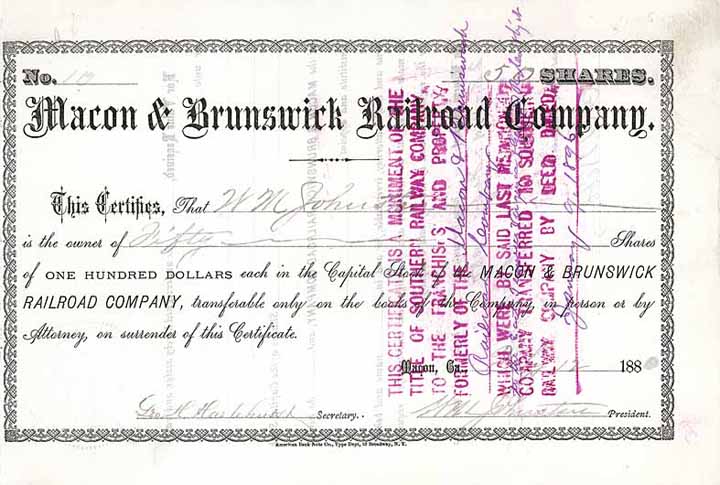 No. 50 SHARES.
Macon & Brunswick Railroad Company.
This Certifies, That W M Johnston
is the owner of Fifty Shares
of ONE HUNDRED DOLLARS each in the Capital Stock of the MACON & BRUNSWICK
RAILROAD COMPANY, transferable only on the books of the Company, in person or by
Attorney, on surrender of this Certificate.
Macon, Ga., 12 188
Secretary. President.
American Bank Note Co., Type Dept, 53 Broadway, N. Y.
THIS CERTIFICATE IS A MUNIMENT OF THE
TITLE OF SOUTHERN RAILWAY COMPANY
TO THE FRANCHISES AND PROPERTY
FORMERLY OF THE Macon & Brunswick
Railroad Company
WHICH WERE BY SAID LAST
COMPANY TRANSFERRED TO SOUTHERN
RAILWAY COMPANY BY DEED DATED
1896